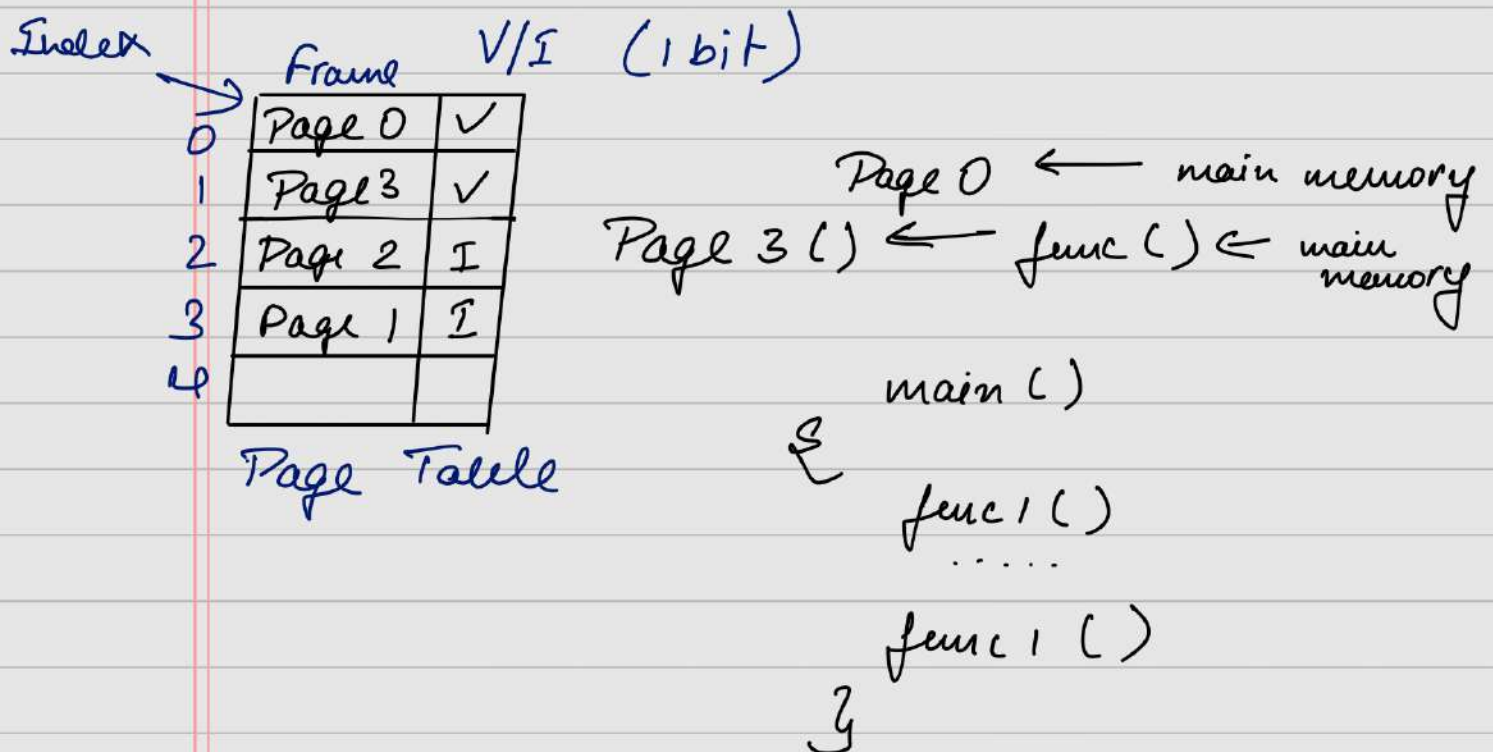 Index
Frame V/I (1 bit)
0 Page 0 V
1 Page 3 V
2 Page 2 I
3 Page 1 I
4
Page Table
Page 0 ← main memory
Page 3 () ← func () ← main memory
main ()
{
func 1 ()
.....
func 1 ()
}